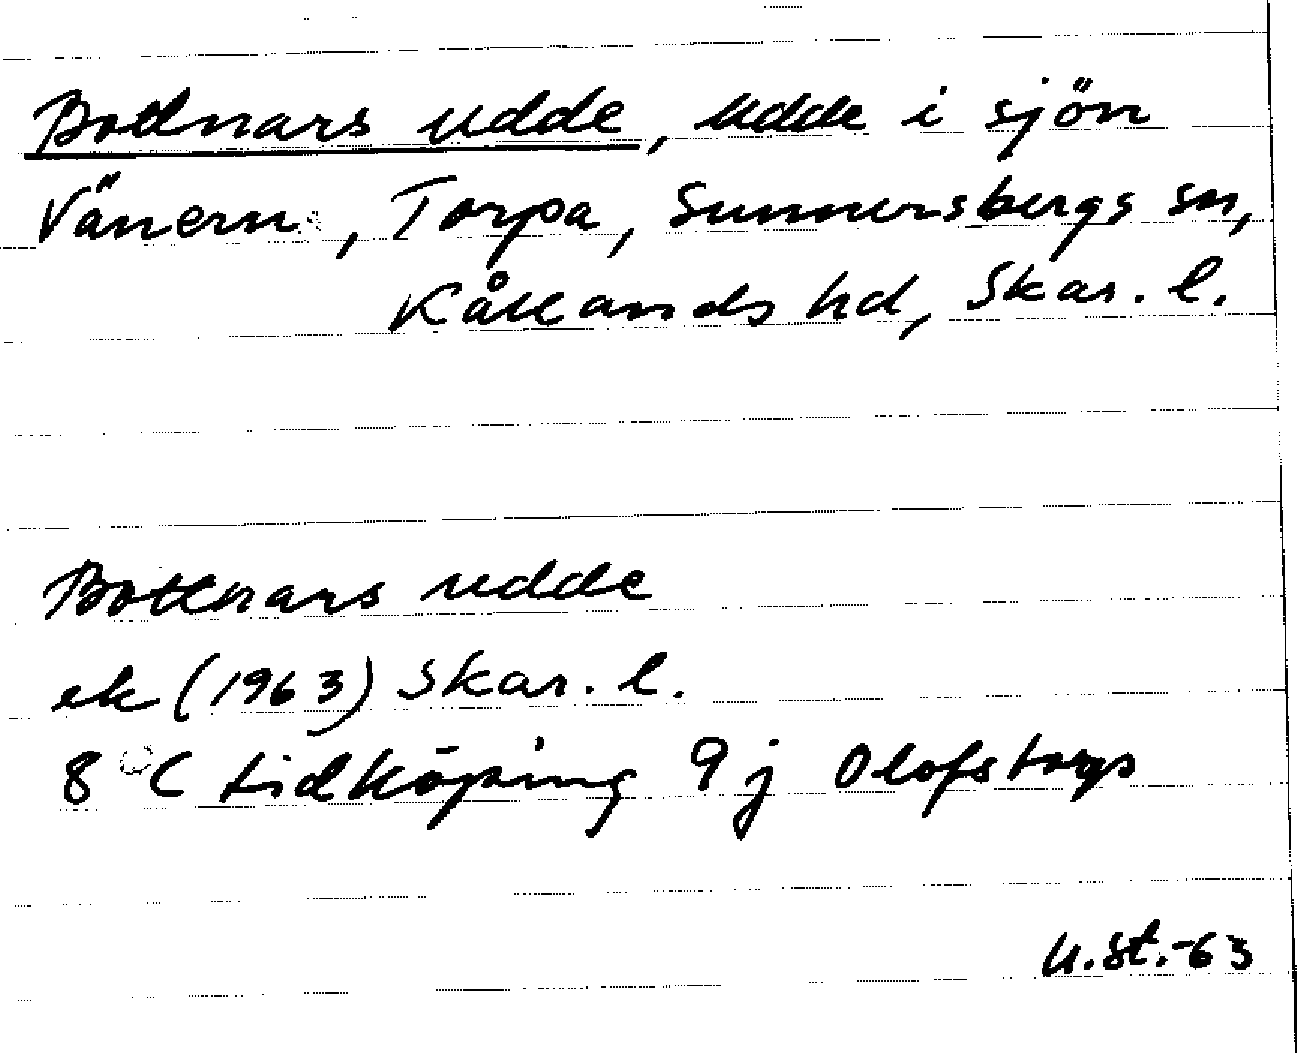 Bottnars udde, udde i sjön
Vänern, Torpa, Sunnersbergs sn,
Kållands hd, Skar. l.
Bottnars udde
ek (1963) Skar. l.
8 C Lidköping 9 j Olofstorp
U.St.-63